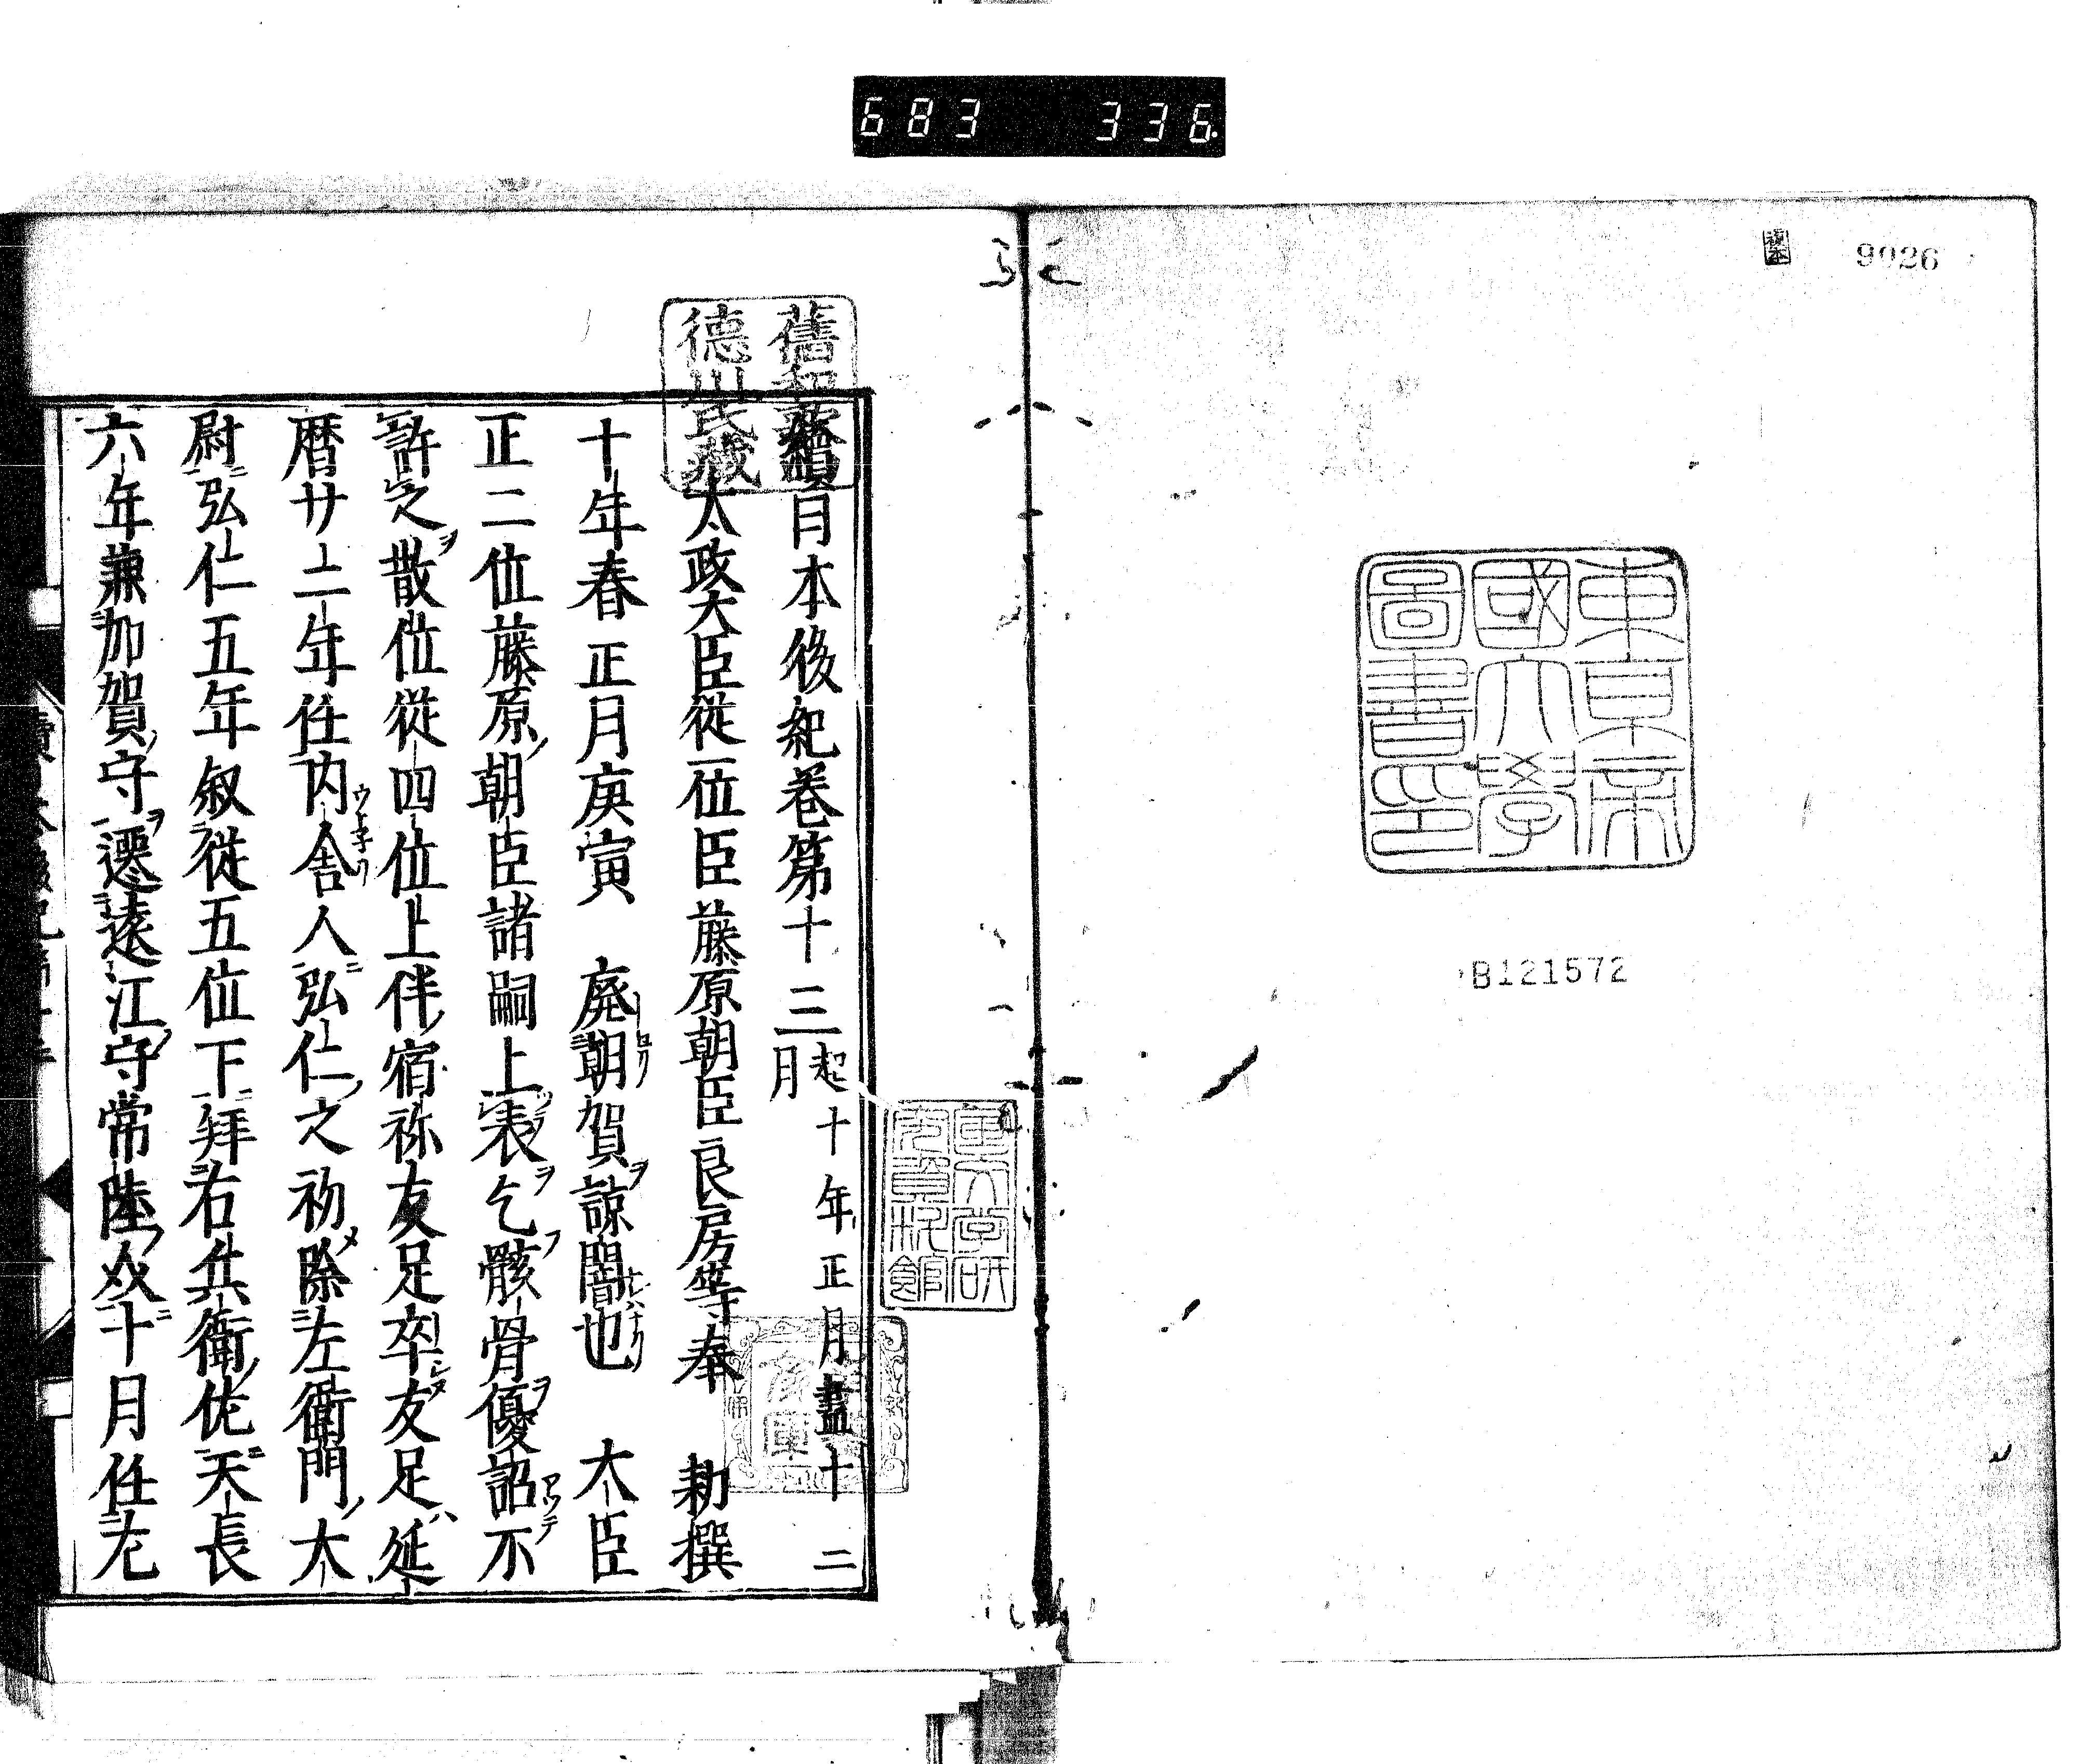 683 336
9026
複本
東京帝
國大學
圖書印
B121572
舊和歌
德川氏藏
續日本後紀卷第十三 起十年正月盡十二月
太政大臣從一位臣藤原朝臣良房等奉 勅撰
十年春正月庚寅 廢朝賀諒闇也 大臣
正二位藤原朝臣諸嗣上表乞骸骨優詔不
許之散位從四位上伴宿祢友足卒友足延
曆廿二年任内舎人弘仁之初除左衛門大
尉弘仁五年叙從五位下拜右兵衛佐天長
六年兼加賀守遷遠江守常陸介十月任左